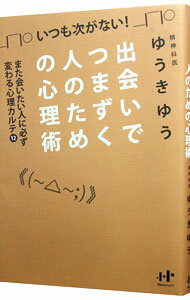 いつも次がない!
出会いで
つまずく
人のため
の心理術
また会いたい人に必ず
変わる心理カルテ12
精神科医
ゆうきゆう
((~△~;))
Nanaブックス
人のための心理術
ゆうきゆう